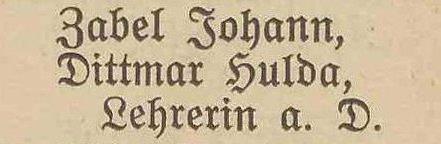 Zabel Johann,
Dittmar Hulda,
Lehrerin a. D.